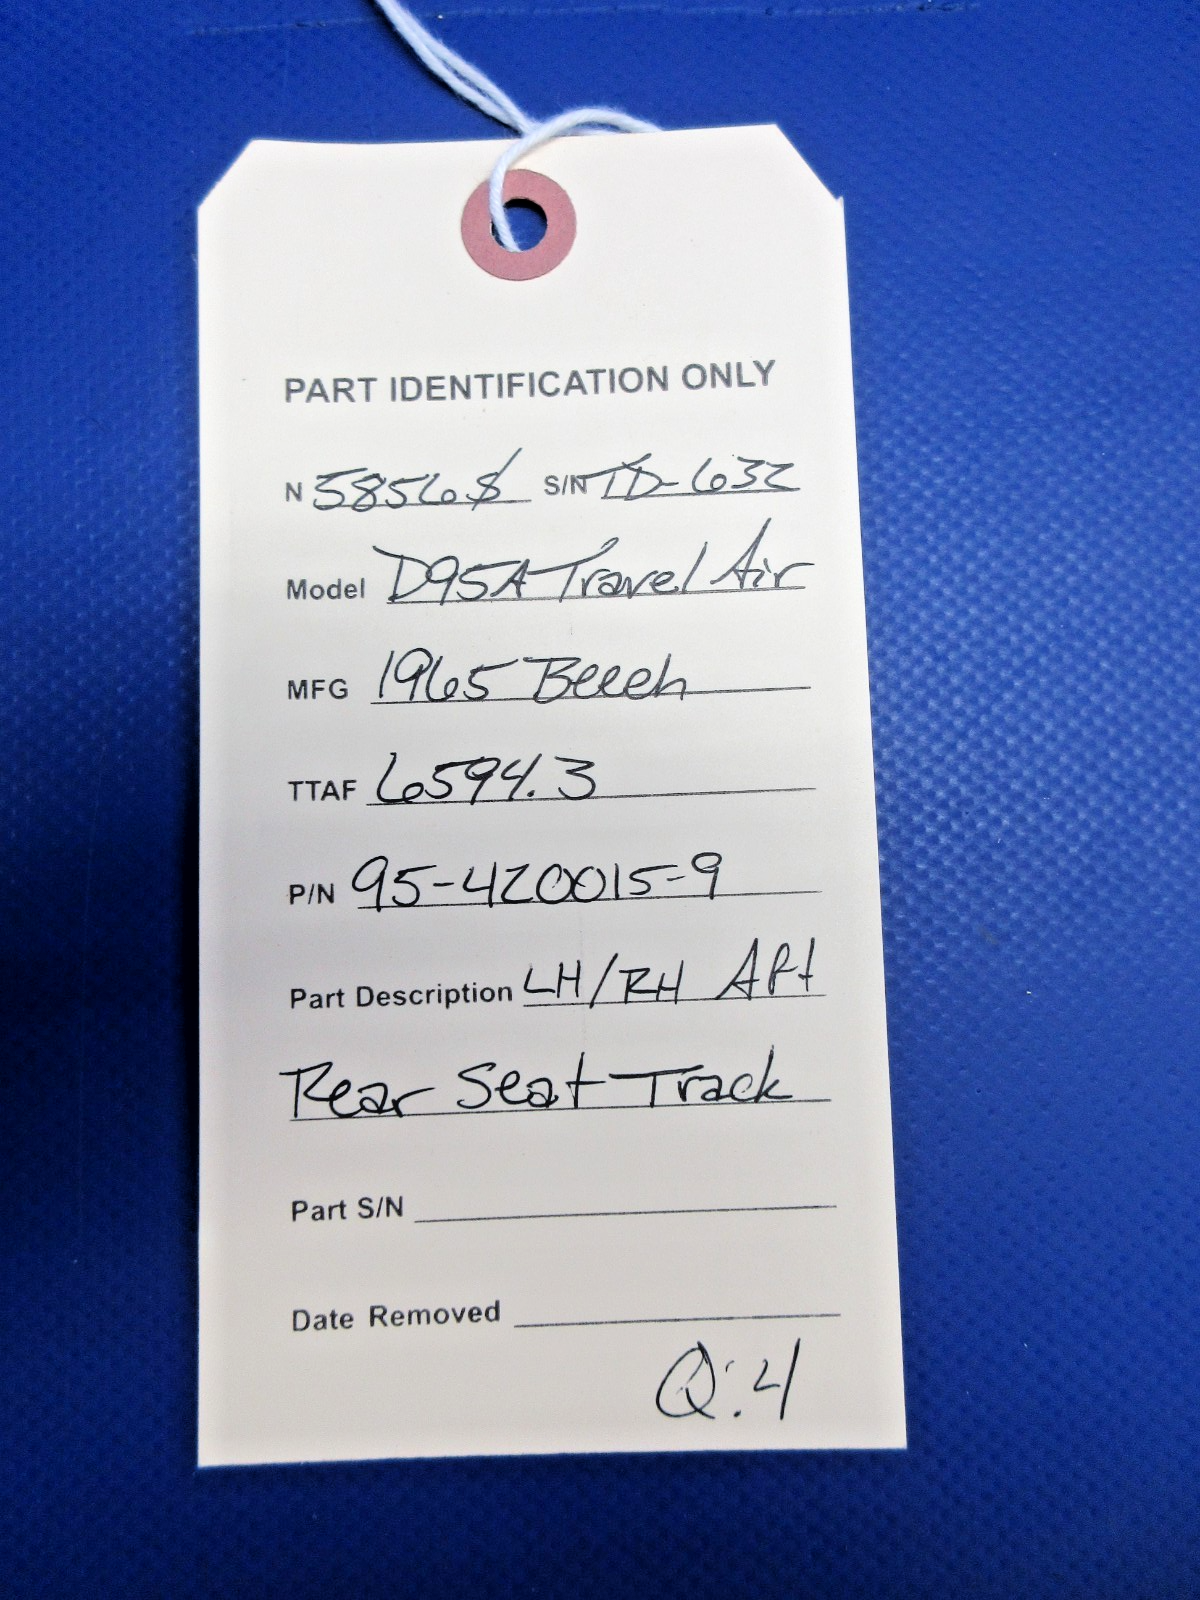 PART IDENTIFICATION ONLY
N 5856S S/N TD-632
Model D95A Travel Air
MFG 1965 Beech
TTAF 6594.3
P/N 95-420015-9
Part Description LH/RH Aft
Rear Seat Track
Part S/N
Date Removed
Q:4